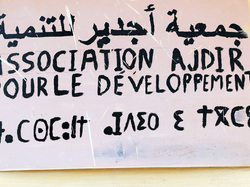 جمعية أجدير للتنمية
ASSOCIATION AJDIR
POUR LE DÉVELOPPEMENT
ⵜⴰⵎⵙⵎⵓⵏⵜ ⴰⵊⴷⵉⵔ ⵉ